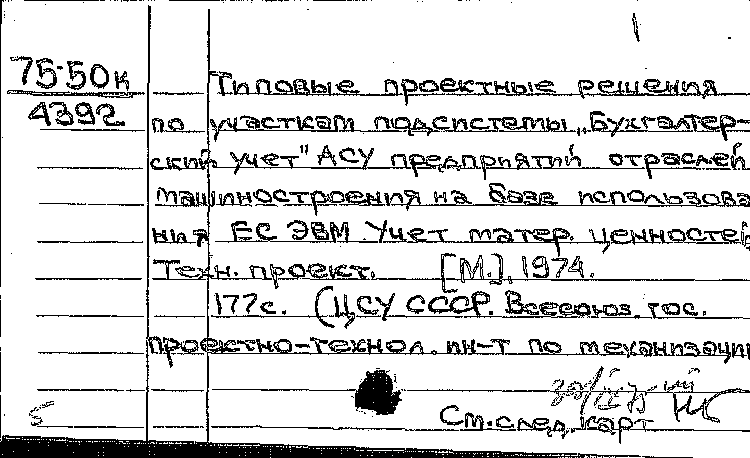 75-50к
4392
Типовые проектные решения
по участкам подсистемы „Бухгалтер-
ский учет" АСУ предприятий отраслей
машиностроения на базе использова
ния ЕС ЭВМ. Учет матер. ценностей
Техн. проект. [М.], 1974.
177с. (ЦСУ СССР. Всесоюз. гос.
проектно-технол. ин-т по механизации
См. след. карт
5